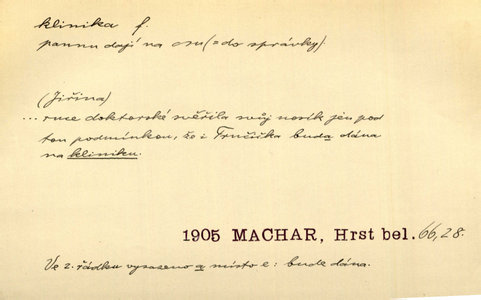 klinika f.
pannu dají na osu (= do správky).
(Jiřina)
... ruce doktorské svěřila svůj nosík jen pod
tou podmínkou, že i Fručička buda dána
na kliniku.
1905 MACHAR, Hrst bel. 66, 28.
Ve 2. řádku vysazeno a místo e: bude dána.